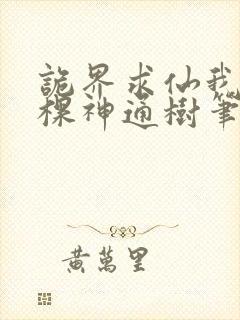 詭界求仙我
棵神通樹筆
黃萬里